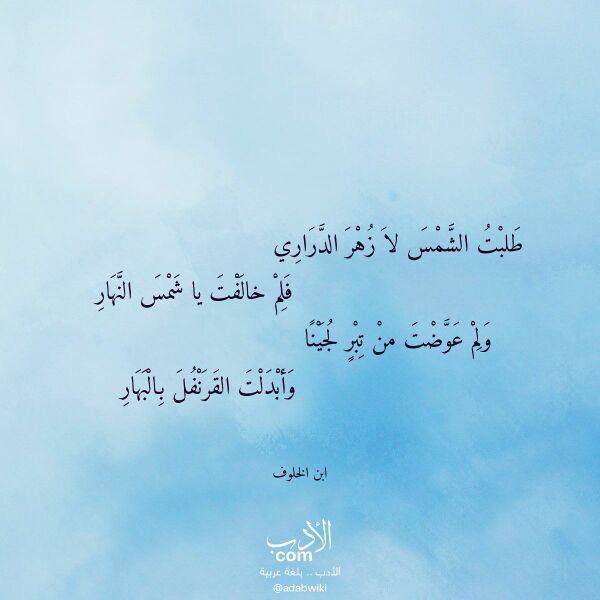 طَلبْتُ الشَّمْسَ لاَ زُهْرَ الدَّرَارِي
فَلِمْ خالَفْتَ يا شَمْسَ النَّهَارِ
وَلِمْ عَوَّضْتَ منْ تِبْرٍ لُجَيْنًا
وَأبْدَلْتَ القَرَنْفُلَ بِالْبَهَارِ
ابن الخلوف
الأدب
com
الأدب .. بلغة عربية
@adabwiki